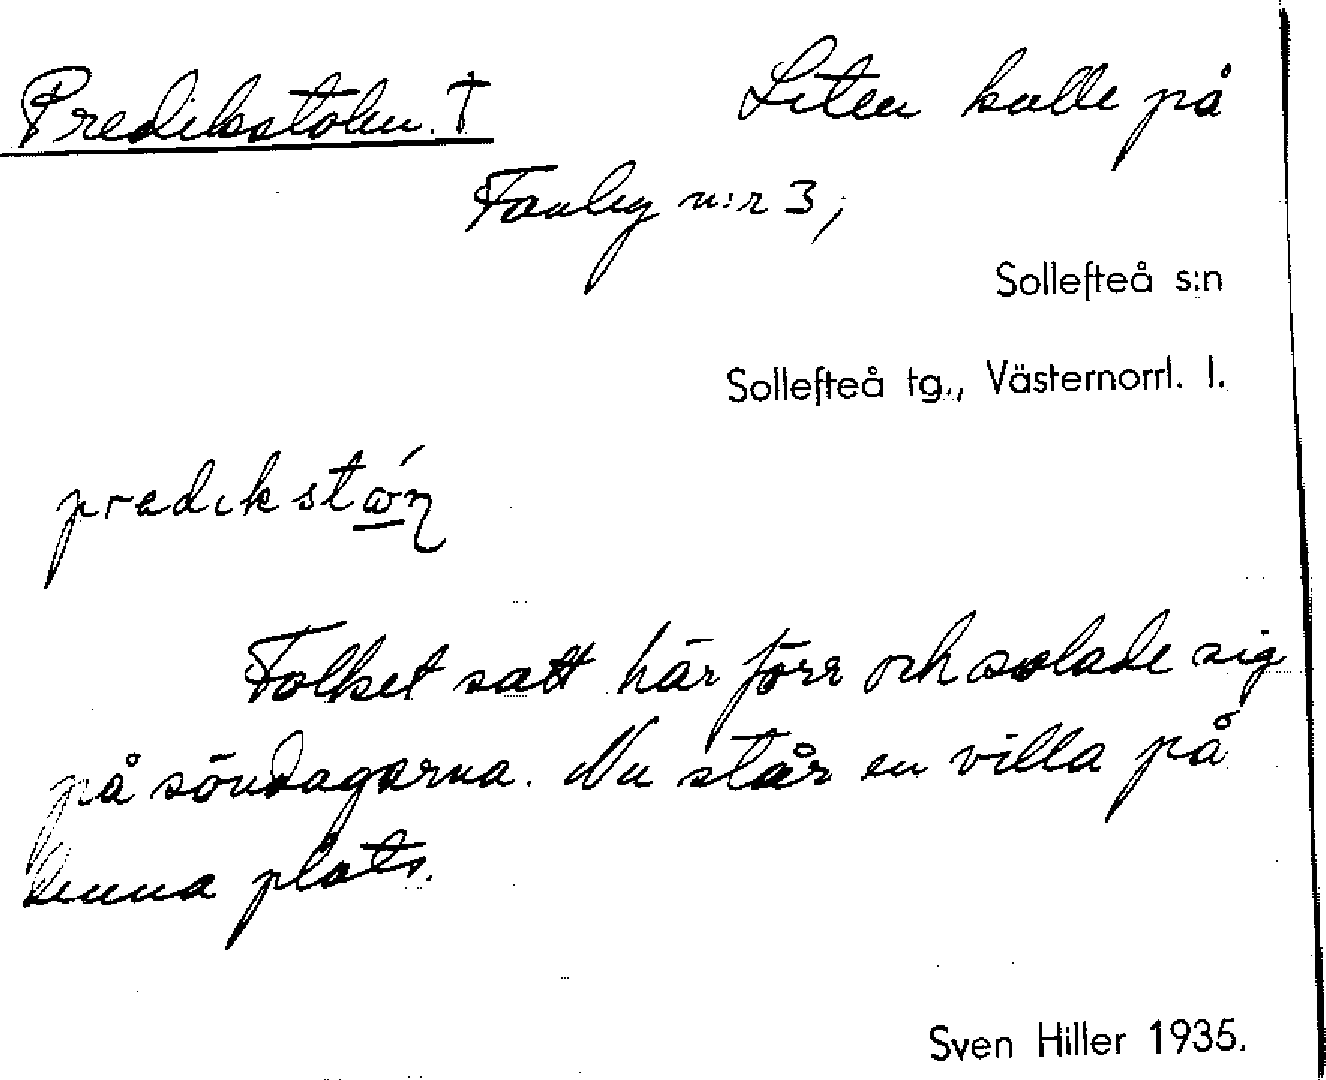 Predikstolen. † Liten kulle på
Fanby n:r 3,
Sollefteå s:n
Sollefteå tg., Västernorrl. l.
Folket satt här förr och solade sig
på söndagarna. Nu står en villa på
denna plats.
Sven Hiller 1935.